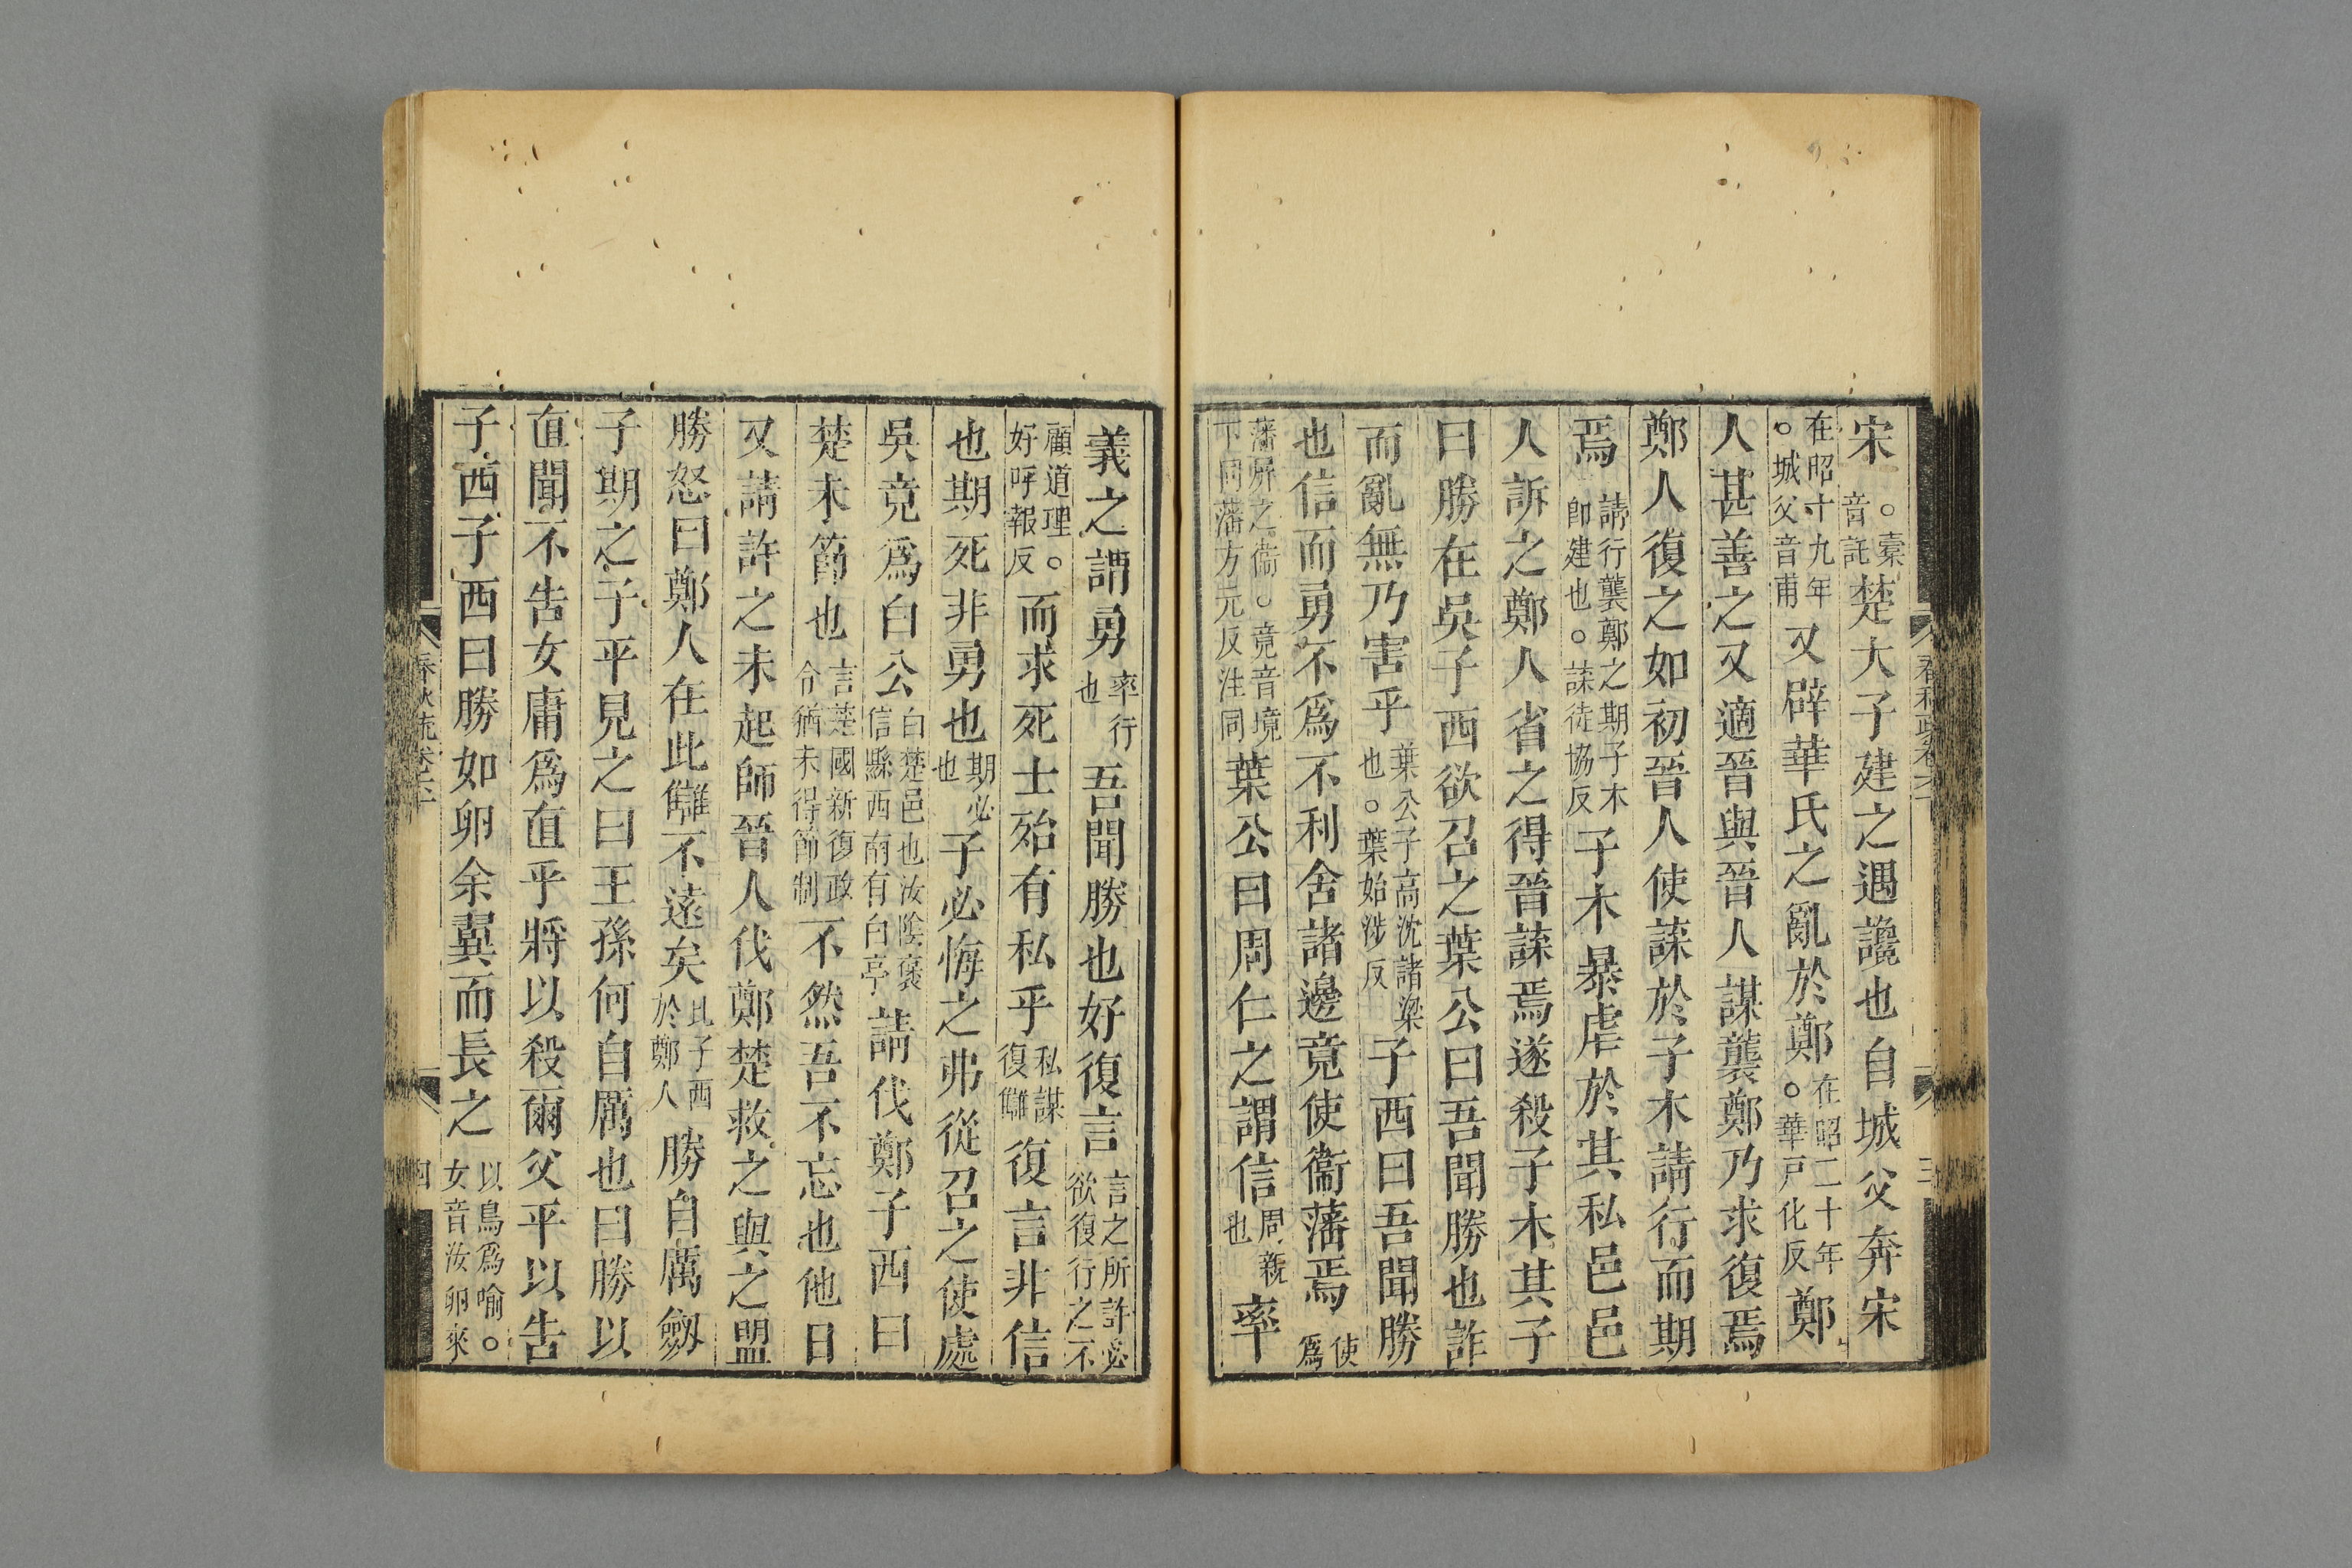 宋○橐音託楚大子建之遇讒也自城父奔宋
在昭十九年○城父音甫又辟華氏之亂於鄭在昭二十年○華戸化反鄭
人甚善之又適晉與晉人謀襲鄭乃求復焉
鄭人復之如初晉人使諜於子木請行而期
焉請行襲鄭之期子木卽建也○諜徒協反子木暴虐於其私邑邑
人訴之鄭人省之得晉諜焉遂殺子木其子
曰勝在吳子西欲召之葉公曰吾聞勝也詐
而亂無乃害乎葉公子高沈諸梁也○葉始涉反子西曰吾聞勝
也信而勇不爲不利舍諸邊竟使衞藩焉使爲
藩屏之衞○竟音境下同藩方元反注同葉公曰周仁之謂信周親也率
義之謂勇率行也吾聞勝也好復言言之所許必欲復行之不
顧道理○好呼報反而求死士殆有私乎私謀復讎復言非信
也期死非勇也期必也子必悔之弗從召之使處
吳竟爲白公白楚邑也汝陰褒信縣西南有白亭請伐鄭子西曰
楚未節也言楚國新復政令猶未得節制不然吾不忘也他日
又請許之未起師晉人伐鄭楚救之與之盟
勝怒曰鄭人在此讎不遠矣比子西於鄭人勝自厲劒
子期之子平見之曰王孫何自厲也曰勝以
直聞不告女庸爲直乎將以殺爾父平以告
子西子西曰勝如卵余翼而長之以鳥爲喻○女音汝卵來
四